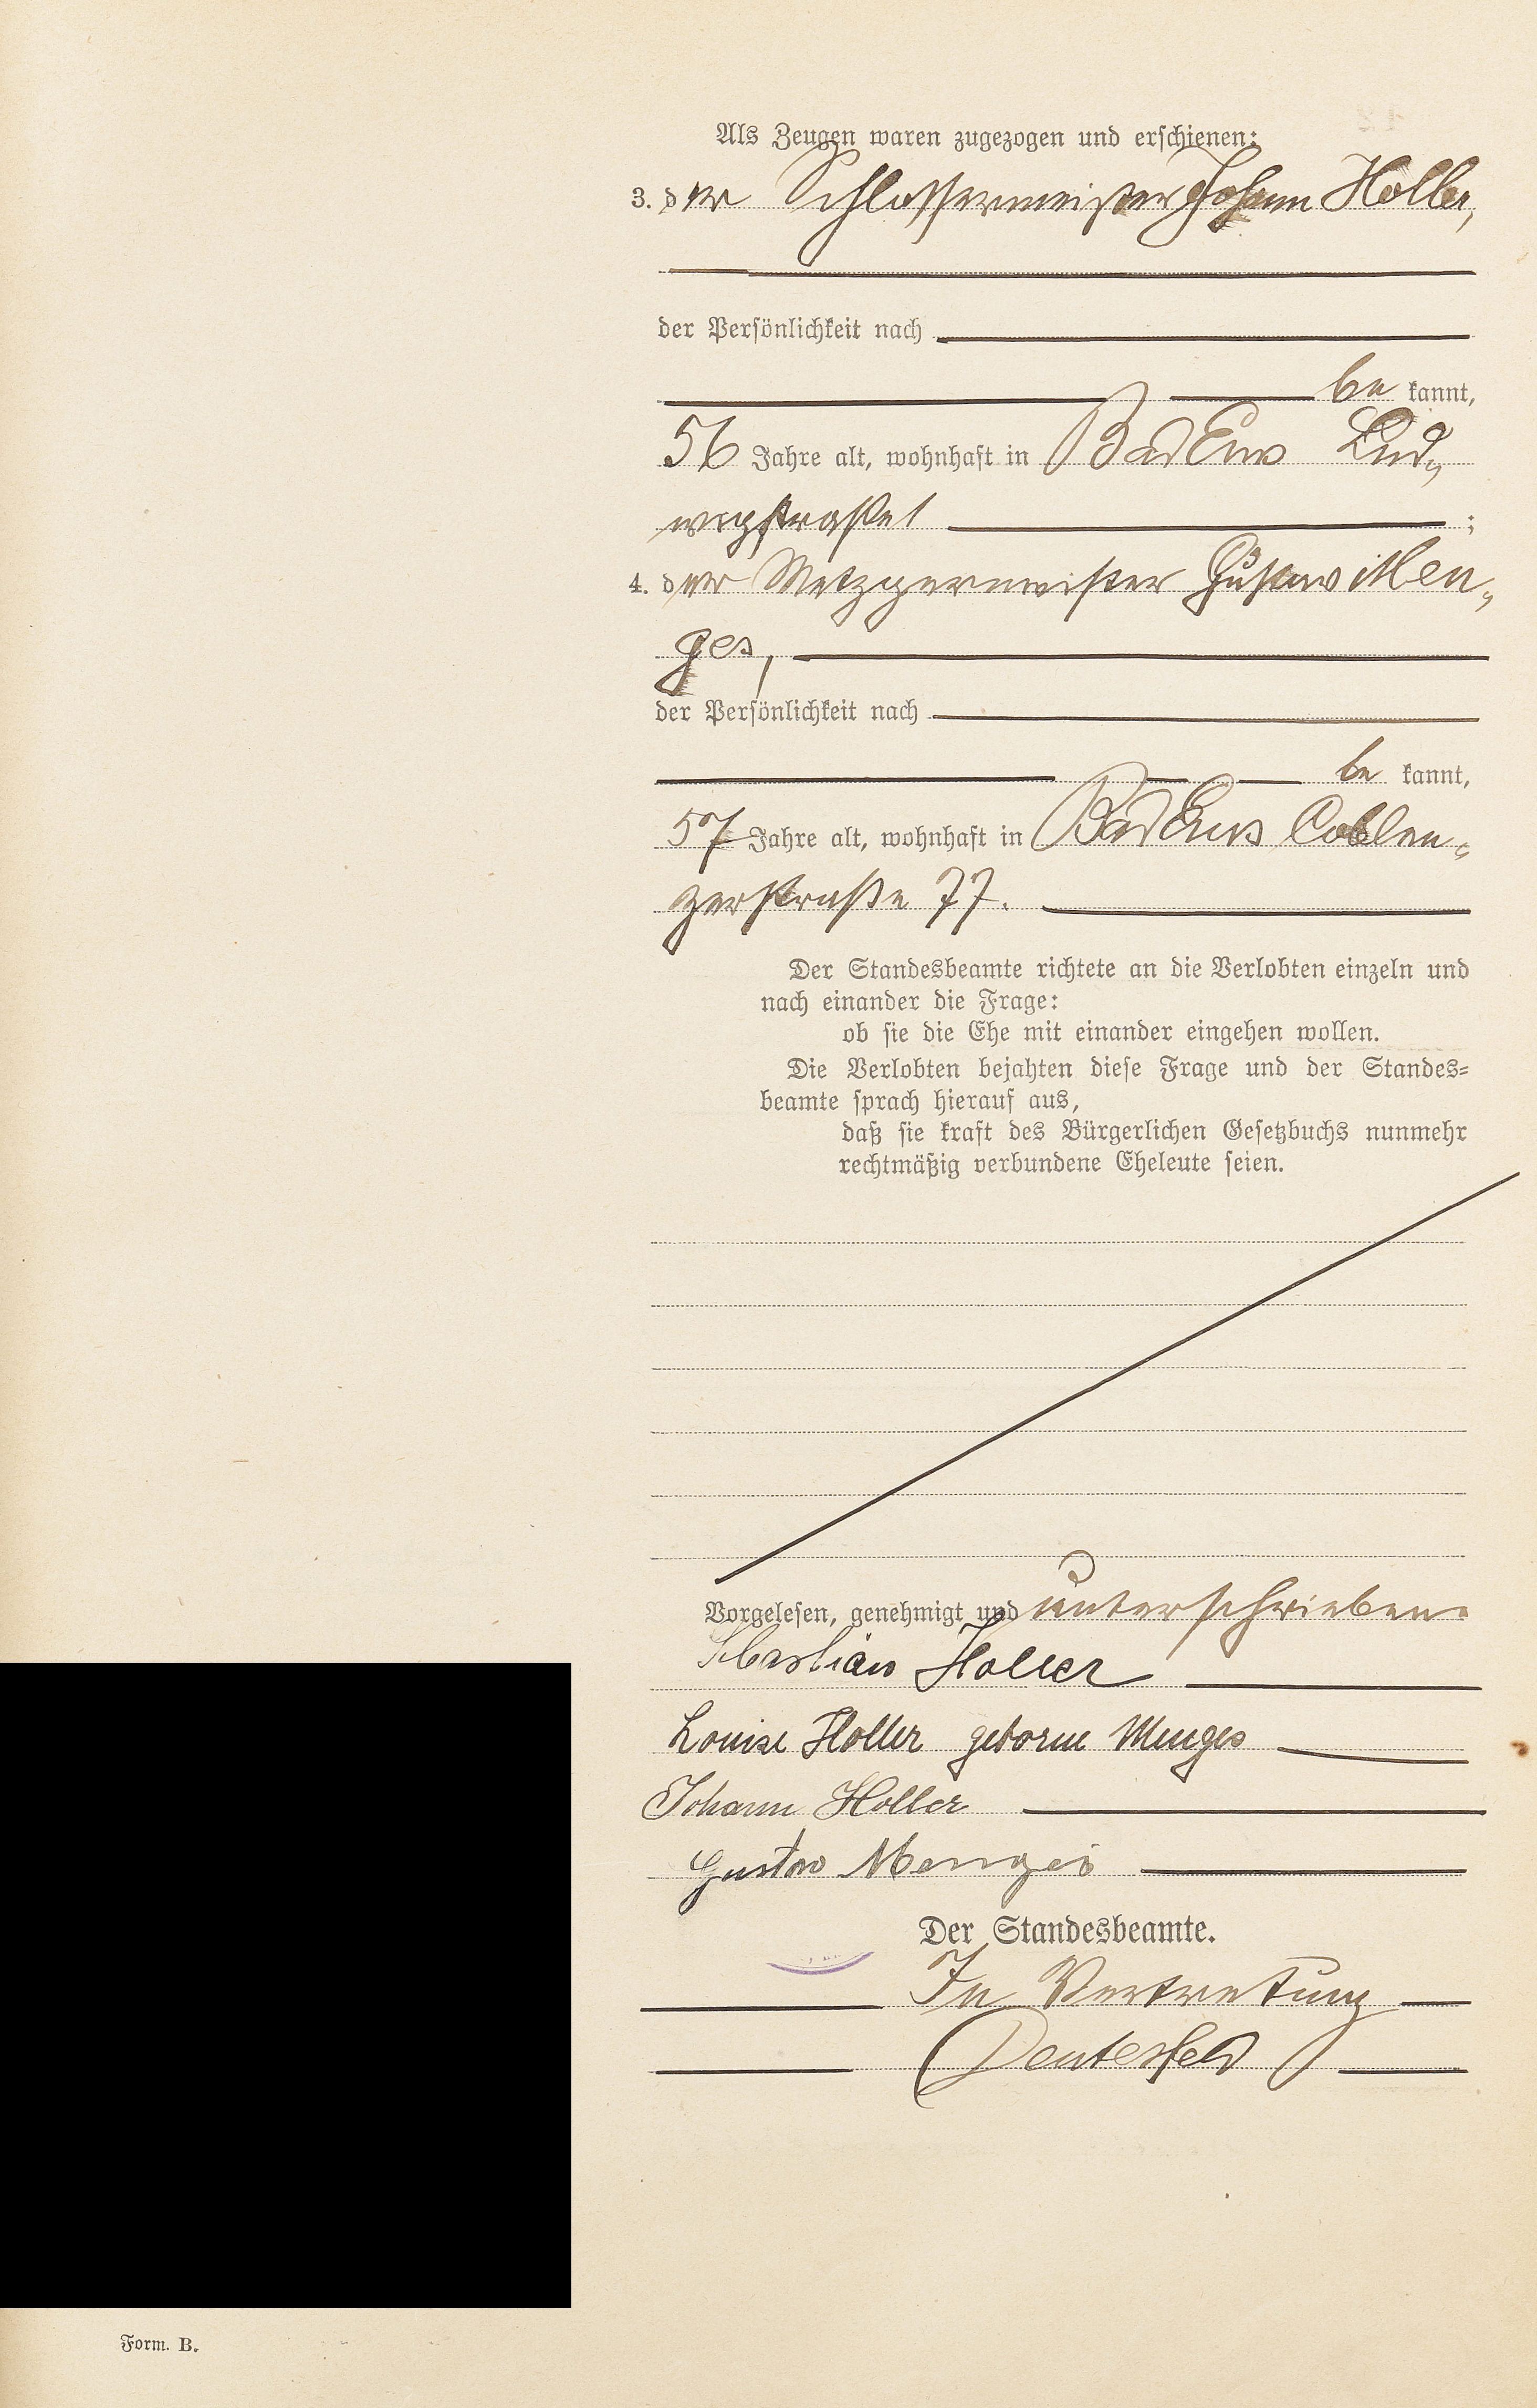 Als Zeugen waren zugezogen und erschienen:
3. der Schlossermeister Johann Holler,
der Persönlichkeit nach
be kannt,
56 Jahre alt, wohnhaft in Bad Ems Lud„
wigstraße 1 ;
4. der Metzgermeister Gustav Men„
ges,
der Persönlichkeit nach
be kannt,
57 Jahre alt, wohnhaft in Bad Ems Coblen„
zerstraße 77.
Der Standesbeamte richtete an die Verlobten einzeln und
nach einander die Frage:
ob sie die Ehe mit einander eingehen wollen.
Die Verlobten bejahten diese Frage und der Standes-
beamte sprach hierauf aus,
daß sie kraft des Bürgerlichen Gesetzbuchs nunmehr
rechtmäßig verbundene Eheleute seien.
Vorgelesen, genehmigt und unterschrieben.
Sebastian Holler
Louise Holler geborne Menges
Johann Holler
Gustav Menges
Der Standesbeamte.
In Vertretung
Deutesfeld
Form. B.